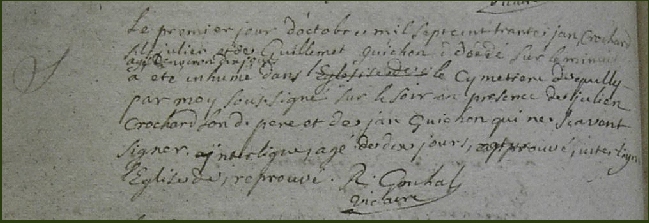 Le premier jour d'octobre mil sept cent trante jan Crochard
fils julien et de Guillemet quichon decédé sur le minuit
agé d'environ dix jours
a eté inhumé dans l'Eglise de le Cymetiere de
par moy soussigné sur le soir en presence de julien
Crochard son d. pere et de jan Quichon qui ne scavent
signer. agé de dix jours, approuvé, interligne
l'Eglise de, reprouvé. R.
Vicaire